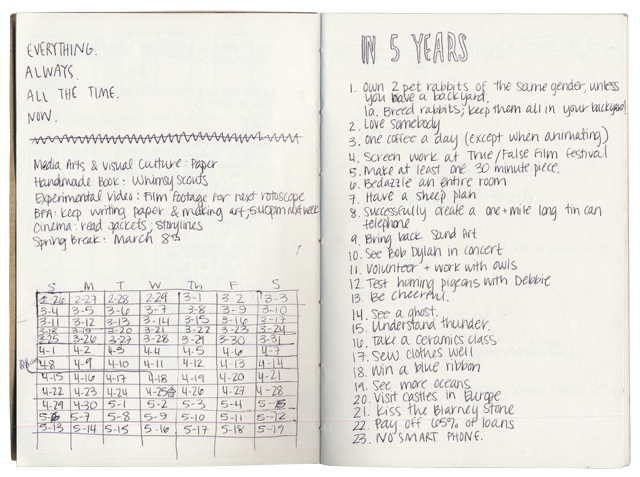 EVERYTHING.
ALWAYS.
ALL THE TIME.
NOW.
Media Arts & Visual Culture: Paper
Handmade Book: Whimsy Scouts
Experimental Video: Film footage for next rotoscope
BFA: keep writing paper & making art;
Cinema: read packets; storylines
Spring Break: March 8th
S M T W Th F S
2-26 2-27 2-28 2-29 3-1 3-2 3-3
3-4 3-5 3-6 3-7 3-8 3-9 3-10
3-11 3-12 3-13 3-14 3-15 3-16 3-17
3-18 3-19 3-20 3-21 3-22 3-23 3-24
3-25 3-26 3-27 3-28 3-29 3-30 3-31
4-1 4-2 4-3 4-4 4-5 4-6 4-7
4-8 4-9 4-10 4-11 4-12 4-13 4-14
4-15 4-16 4-17 4-18 4-19 4-20 4-21
4-22 4-23 4-24 4-25 4-26 4-27 4-28
4-29 4-30 5-1 5-2 5-3 5-4 5-5
5-6 5-7 5-8 5-9 5-10 5-11 5-12
5-13 5-14 5-15 5-16 5-17 5-18 5-19
IN 5 YEARS
1. own 2 pet rabbits of the same gender, unless
you have a backyard.
1a. Breed rabbits; keep them all in your backyard.
2. Love somebody
3. one coffee a day (except when animating)
4. Screen work at True/False Film festival
5. Make at least one 30 minute piece.
6. Bedazzle an entire room
7. Have a sheep plan
8. Successfully create a one+mile long tin can
telephone
9. Bring back Sand Art
10. See Bob Dylan in concert
11. Volunteer + work with owls
12. Test homing pigeons with Debbie
13. Be cheerful.
14. See a ghost.
15. Understand thunder.
16. Take a ceramics class
17. Sew clothes well
18. Win a blue ribbon
19. See more oceans
20. Visit castles in Europe
21. Kiss the Blarney Stone
22. Pay off 65% of loans
23. NO SMART PHONE.